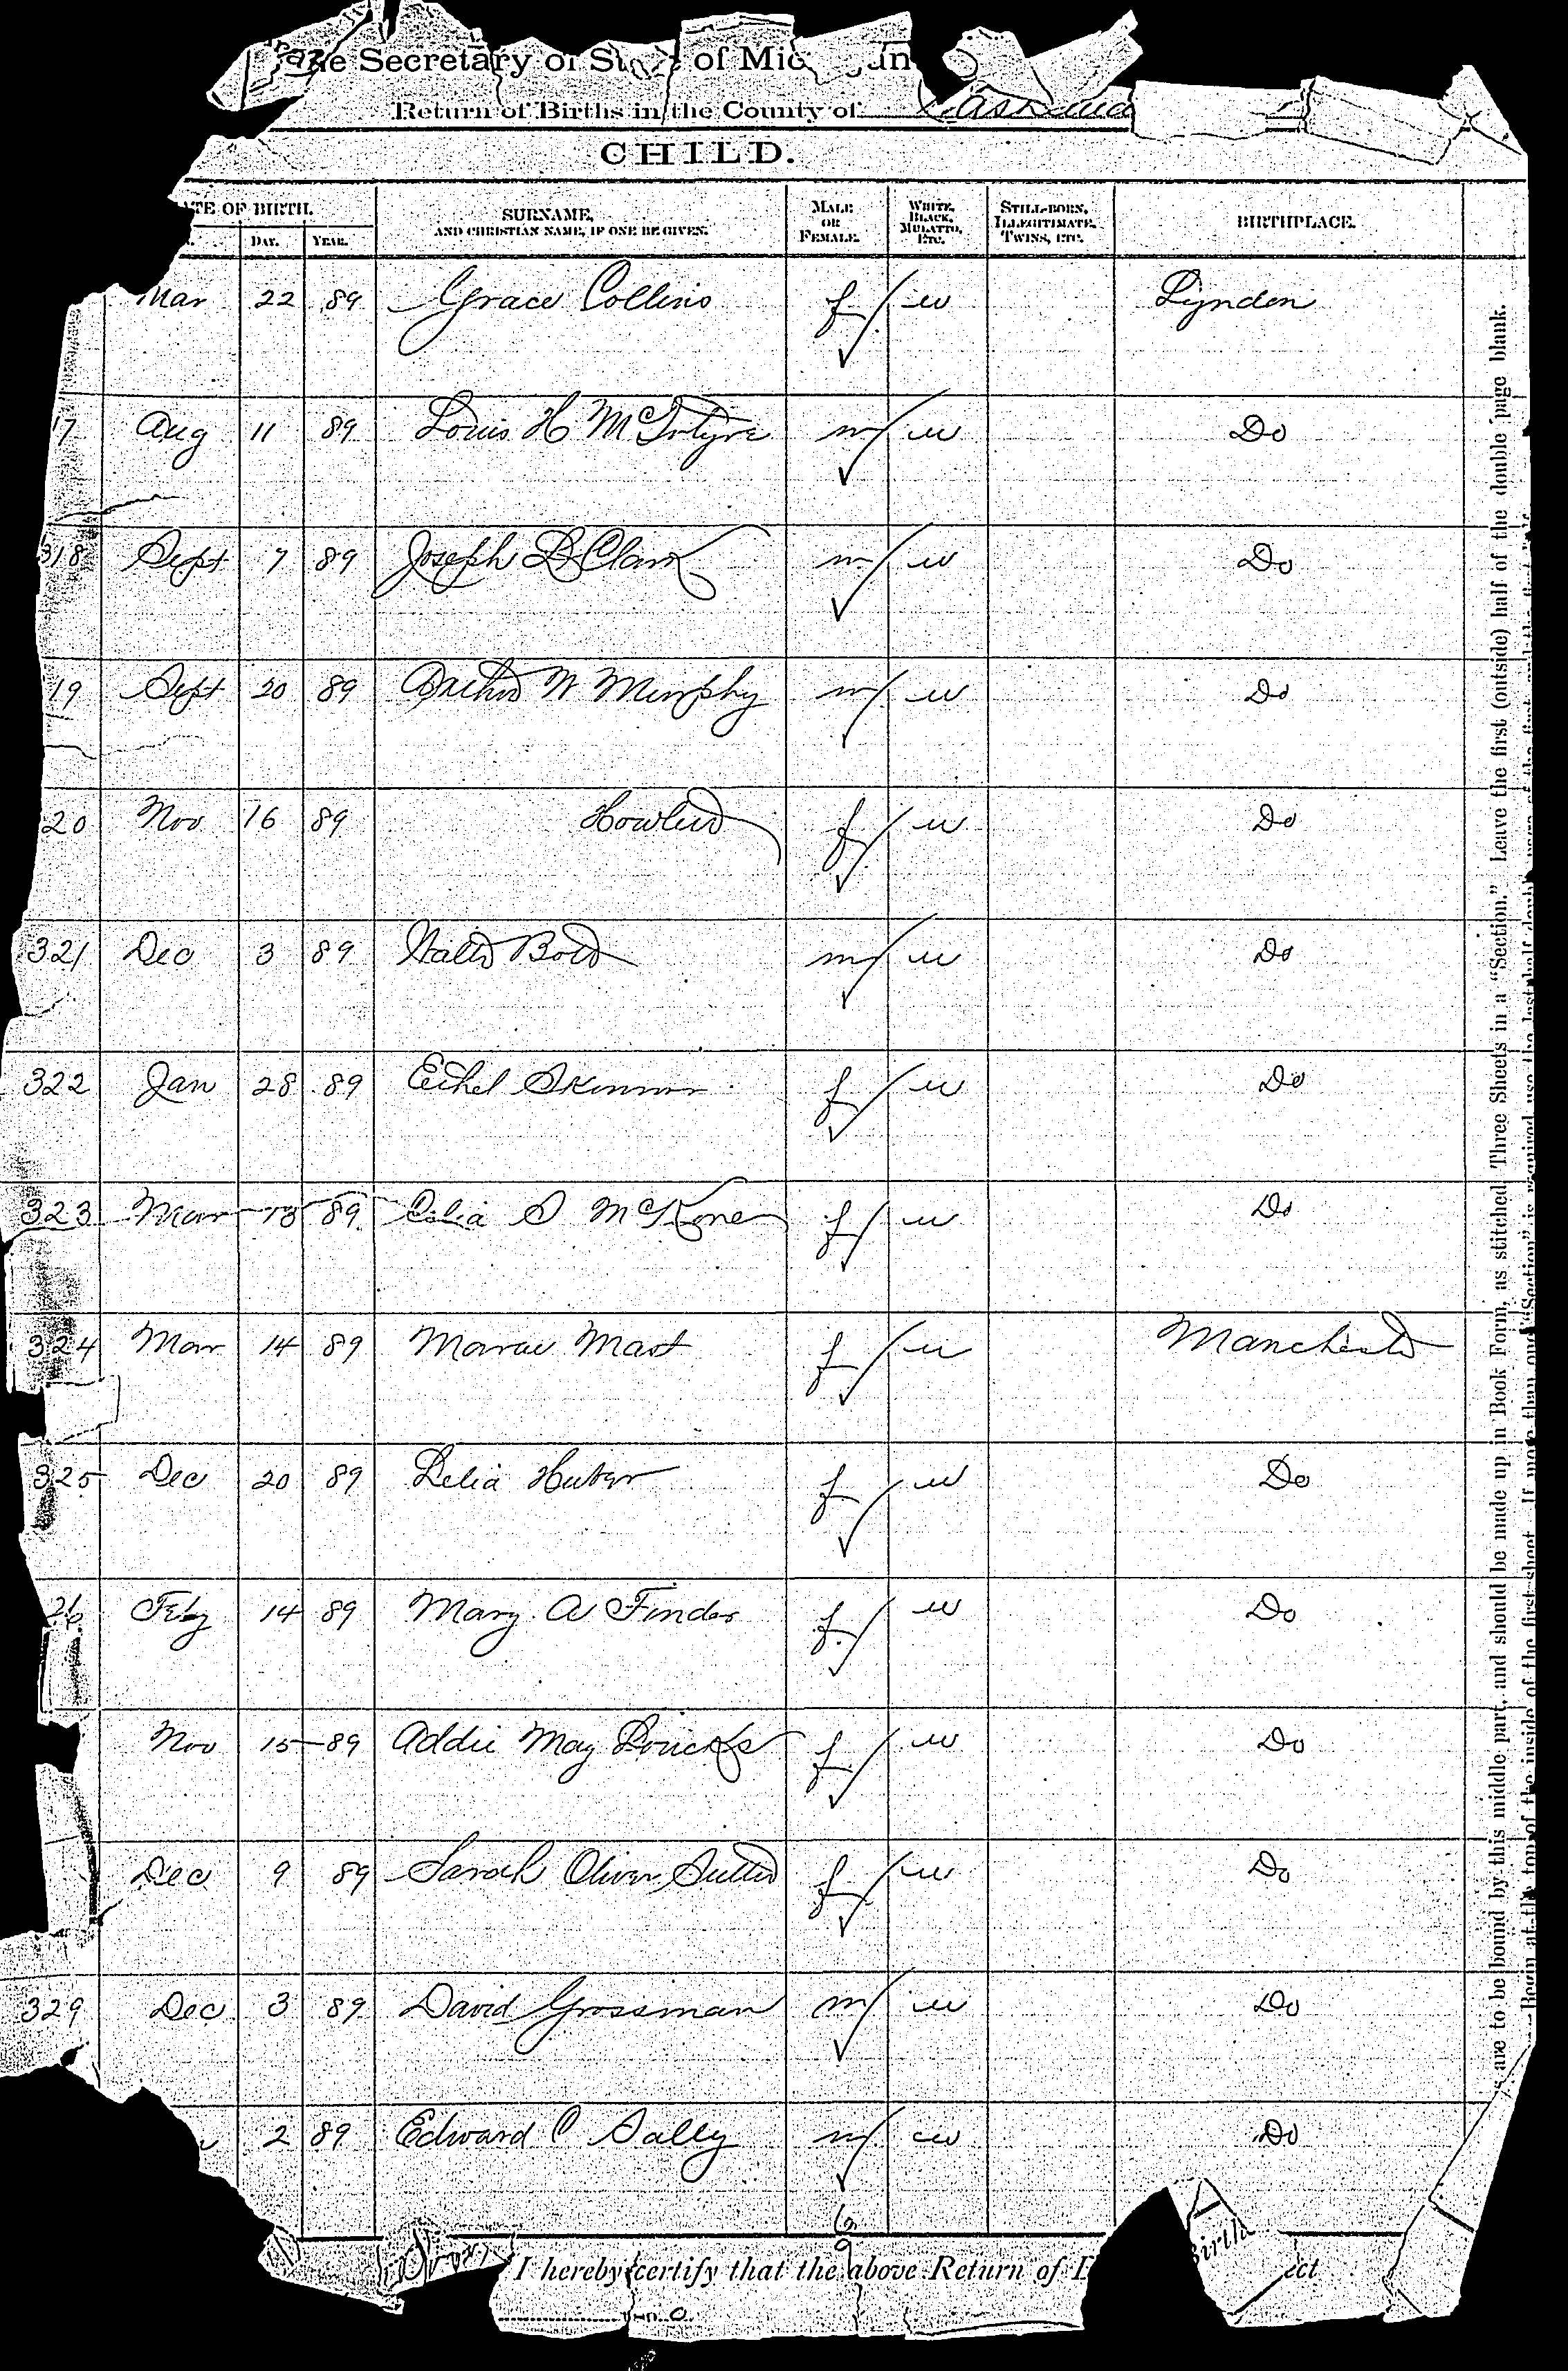 Secretary of State of Michigan
Return of Births in the County of
CHILD.
DATE OF BIRTH. SURNAME, AND CHRISTIAN NAME, IF ONE BE GIVEN. MALE OR FEMALE. WHITE, BLACK, MULATTO, ETC. STILL-BORN, ILLEGITIMATE, TWINS, ETC. BIRTHPLACE.
DAY. YEAR.
Mar 22 89 Grace Collins f w Lyndon
17 Aug 11 89 Louis H McIntyre m w Do
318 Sept 7 89 Joseph B Clark m w Do
19 Sept 20 89 Arthur W Murphy m w Do
20 Nov 16 89 Howlett f w Do
321 Dec 3 89 Walter Bott m w Do
322 Jan 28 89 Ethel Skinner f w Do
323 Mar 13 89 Celia S McKone f w Do
324 Mar 14 89 Mast f w Manchester
325 Dec 20 89 Lelia Huber f w Do
26 Feby 14 89 Mary A Finder f w Do
Nov 15 89 Addie May Loucks f w Do
Dec 9 89 Sarah Oliver Sutter f w Do
329 Dec 3 89 David Grossman m w Do
2 89 Edward C Sally m w Do
I hereby certify that the above Return of
are to be bound by this middle part, and should be made up in Book Form, as stitched Three Sheets in a "Section." Leave the first (outside) half of the double page blank.
Begin at the top of the inside of the first sheet. If more than one "Section" is required use the last half double page of the first and the first